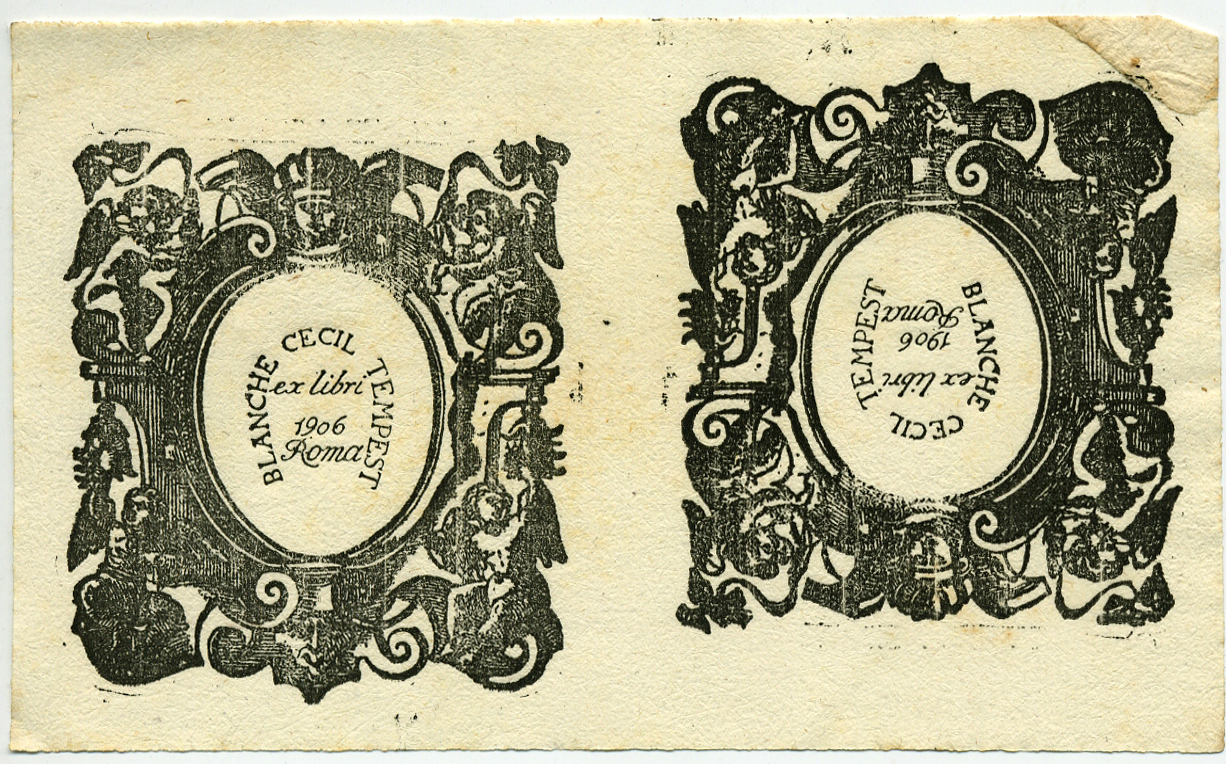 BLANCHE CECIL TEMPEST
ex libri
1906
Roma
BLANCHE CECIL TEMPEST
ex libri
1906
Roma